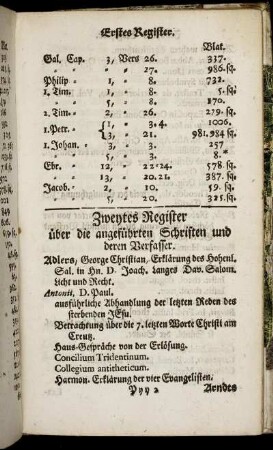 Erstes Register.
Blat.
Gal. Cap. 3, Vers 26. 337.
" " 27. 986.sq.
Philip " 1, " 8. 732.
1. Tim. " 1, " 8. 5. sq.
" 5, " 8. 170.
2. Tim. " 2, " 26. 279. sq.
1. Petr. " 1, " 3. 4. 1006.
3, " 21. 981. 984 sq.
1. Johan. " 3, " 3. 257
" 5, " 3. 8.
Ebr. " 12, " 22-24. 578. sq.
" 13, " 20.21. 387. sq.
Jacob. " 2, " 10. 59. sq.
" 5, " 20. 325. sq.
Zweytes Register
über die angeführten Schriften und
deren Verfasser.
Adlers, George Christian, Erklärung des Hohenl.
Sal. in Hn. D. Joach. Langes Dav. Salom.
Licht und Recht.
Antonii, D. Paul.
ausführliche Abhandlung der letzten Reden des
sterbenden JEsu.
Betrachtung über die 7. letzten Worte Christi am
Creutz.
Haus-Gespräche von der Erlösung.
Concilium Tridentinum.
Collegium antitheticum.
Harmon. Erklärung der vier Evangelisten.
Yyy 2 Arndts